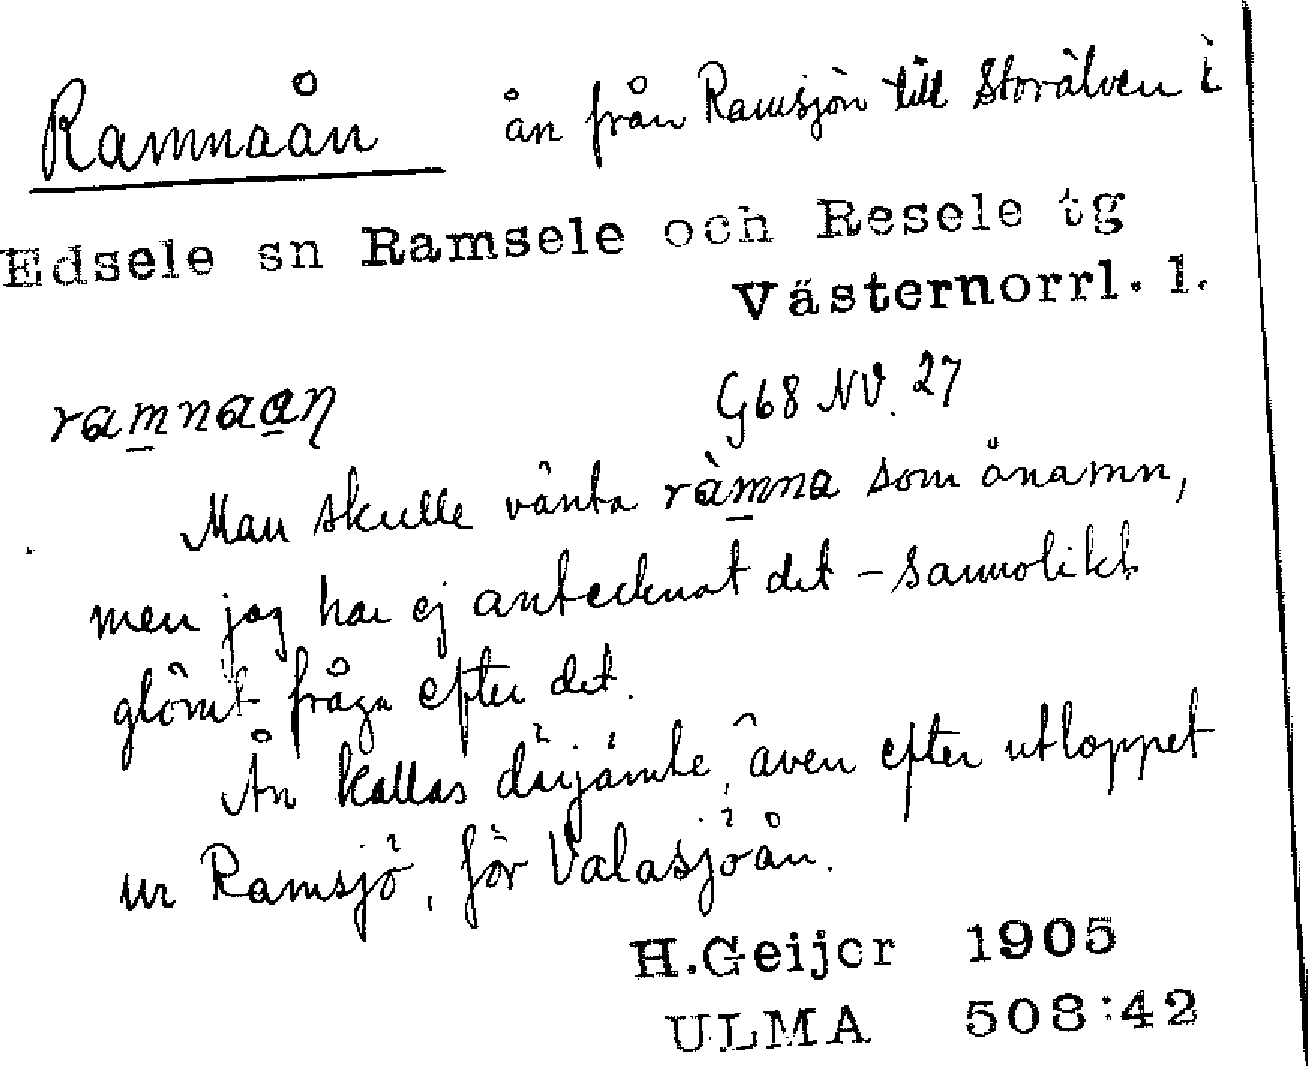 Ramnaån ån från Ramsjön till Storälven i
Edsele sn Ramsele och Resele tg
Västernorrl. l.
ramnaaŋ G68 NV. 27
Man skulle vänta ràmna som ånamn,
men jag har ej antecknat det - sannolikt
glömt fråga efter det.
Ån kallas därjämte, även efter utloppet
ur Ramsjö, för Valasjöån.
H.Geijer 1905
ULMA 508:42